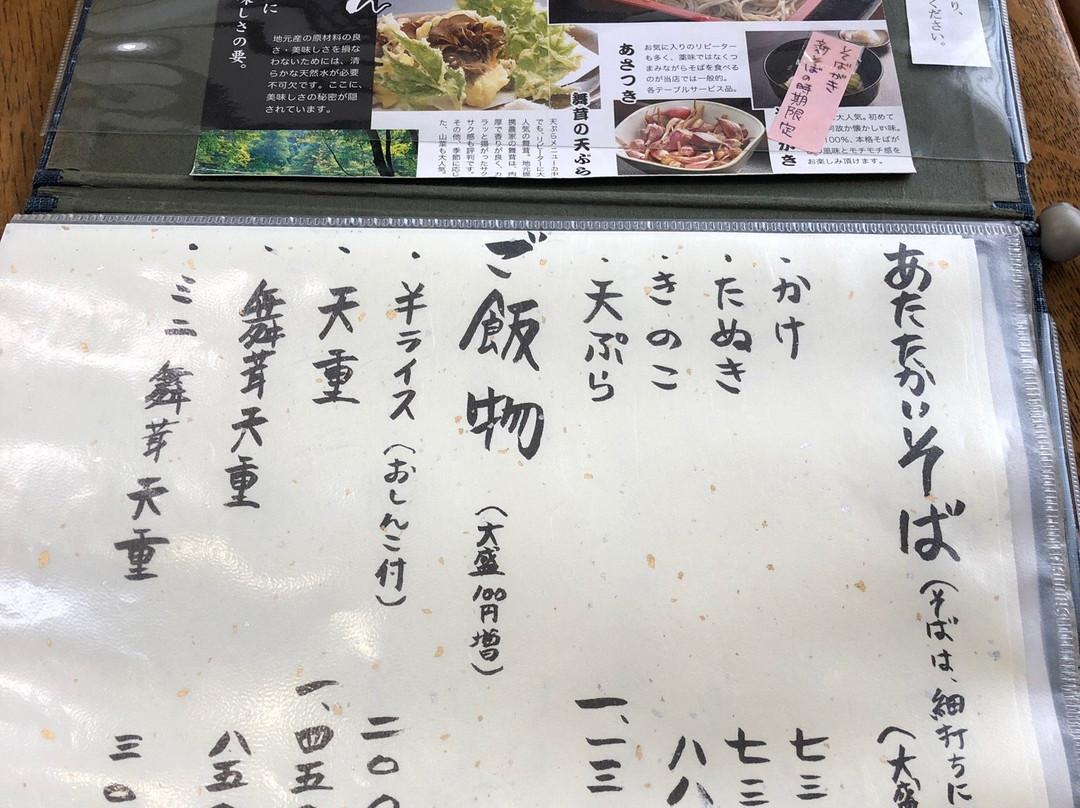 に
味しさの要。
地元産の原材料の良
さ・美味しさを損な
わないためには、清
らかな天然水が必要
不可欠です。ここに、
美味しさの秘密が隠
されています。
舞茸の天ぷら
あさつき
お気に入りのリピーター
も多く、薬味ではなくつ
まみながらそばを食べる
のが当店では一般的。
各テーブルサービス品。
そばがき
新そばの時期限定
大人気。初めて
何故か懐かしい味。
100%、本格そばが
風味とモチモチ感を
お楽しみ頂けます。
ください。
あたたかいそば
(そばは、細打ちに
(大盛
・かけ
七三
・たぬき
七三
・きのこ
八八
・天ぷら
一、一三
ご飯物
(大盛100円増)
・半ライス(おしんこ付)
二〇〇
・天重
一、四五
・舞茸天重
八五
・ミニ舞茸天重
三〇